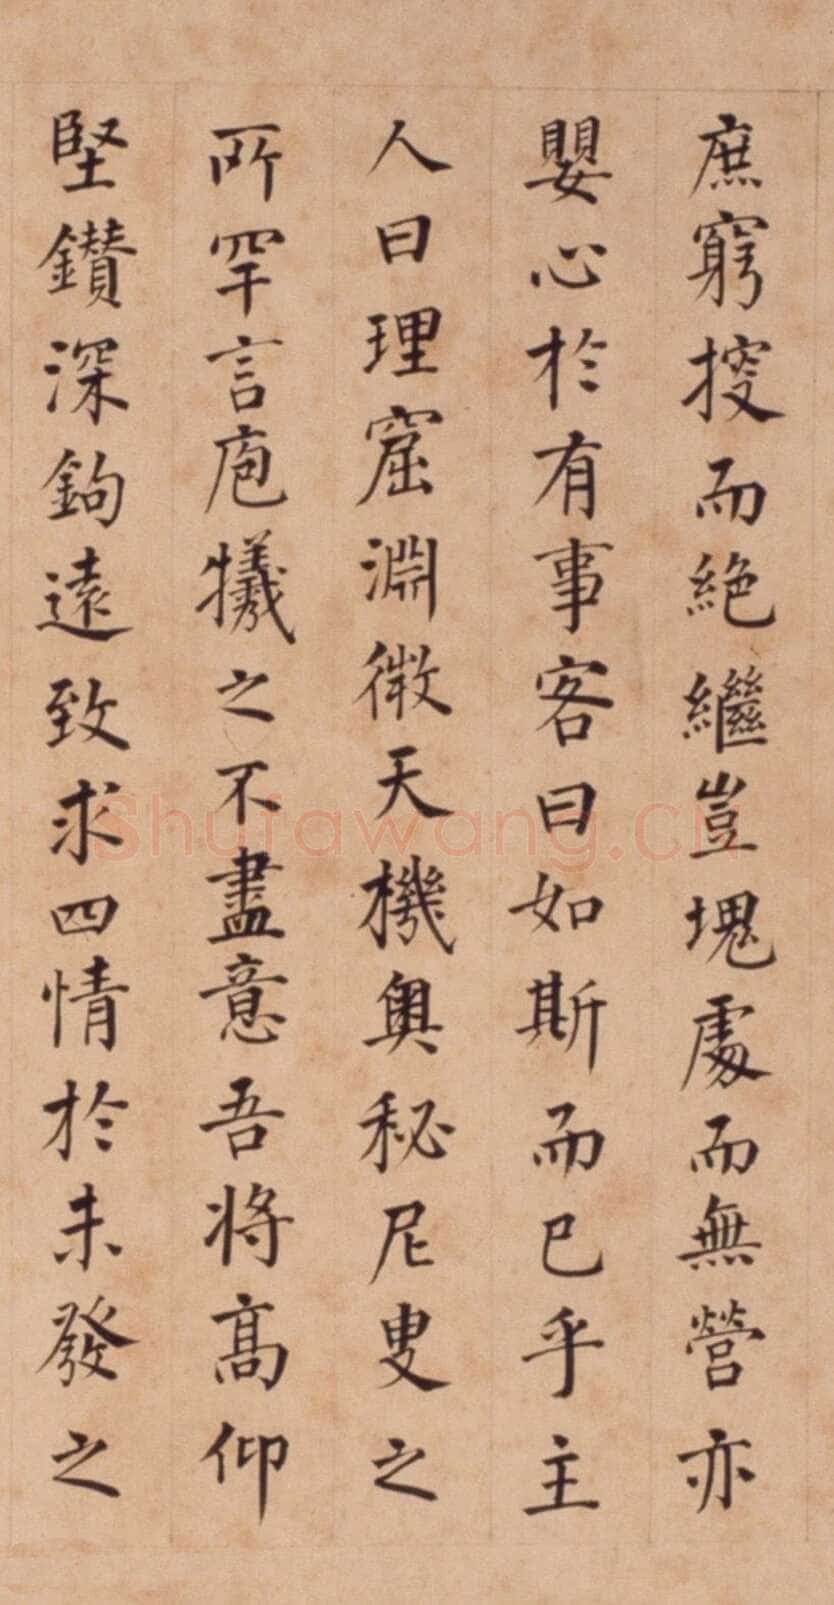 庶窮搜而絶繼豈塊處而無營亦
嬰心於有事客曰如斯而已乎主
人曰理窟淵微天機奧秘尼叟之
所罕言庖犧之不盡意吾將高仰
堅鑽深鉤遠致求四情於未發之
Shufawang.cn